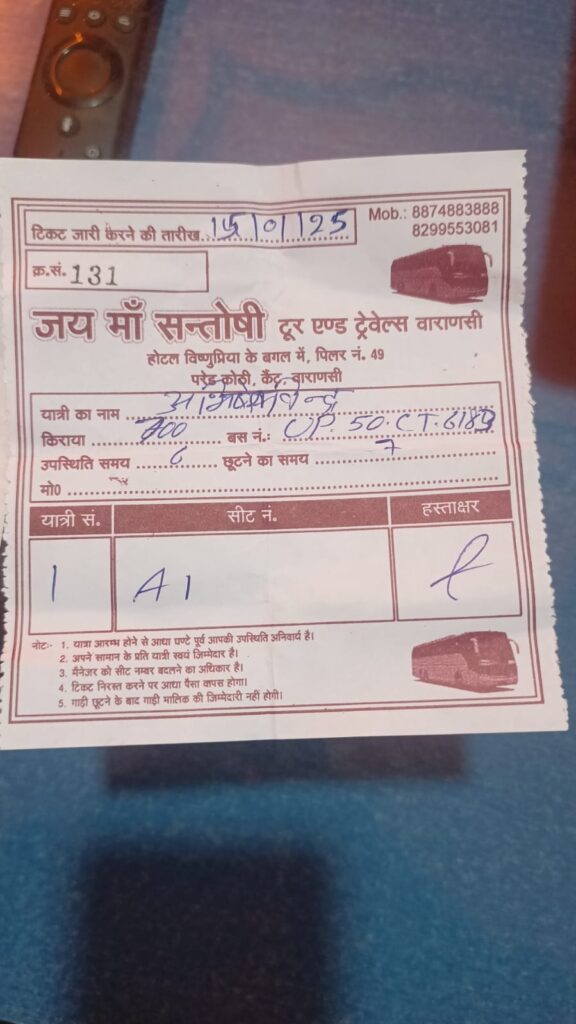 टिकट जारी करने की तारीख..15/01/25
Mob.: 8874883888
8299553081
क्र.सं. 131
जय माँ सन्तोषी टूर एण्ड ट्रेवेल्स वाराणसी
होटल विष्णुप्रिया के बगल में, पिलर नं. 49
परेड कोठी, कैंट, वाराणसी
यात्री का नाम
किराया 700 बस नं.: UP. 50. C T. 6189
उपस्थिति समय 6 छूटने का समय 7
मो0
यात्री सं. सीट नं. हस्ताक्षर
1 A1
नोट:- 1. यात्रा आरम्भ होने से आधा घण्टे पूर्व आपकी उपस्थिति अनिवार्य है।
2. अपने सामान के प्रति यात्री स्वयं जिम्मेदार है।
3. मैनेजर को सीट नम्बर बदलने का अधिकार है।
4. टिकट निरस्त करने पर आधा पैसा वापस होगा।
5. गाड़ी छूटने के बाद गाड़ी मालिक की जिम्मेदारी नहीं होगी।